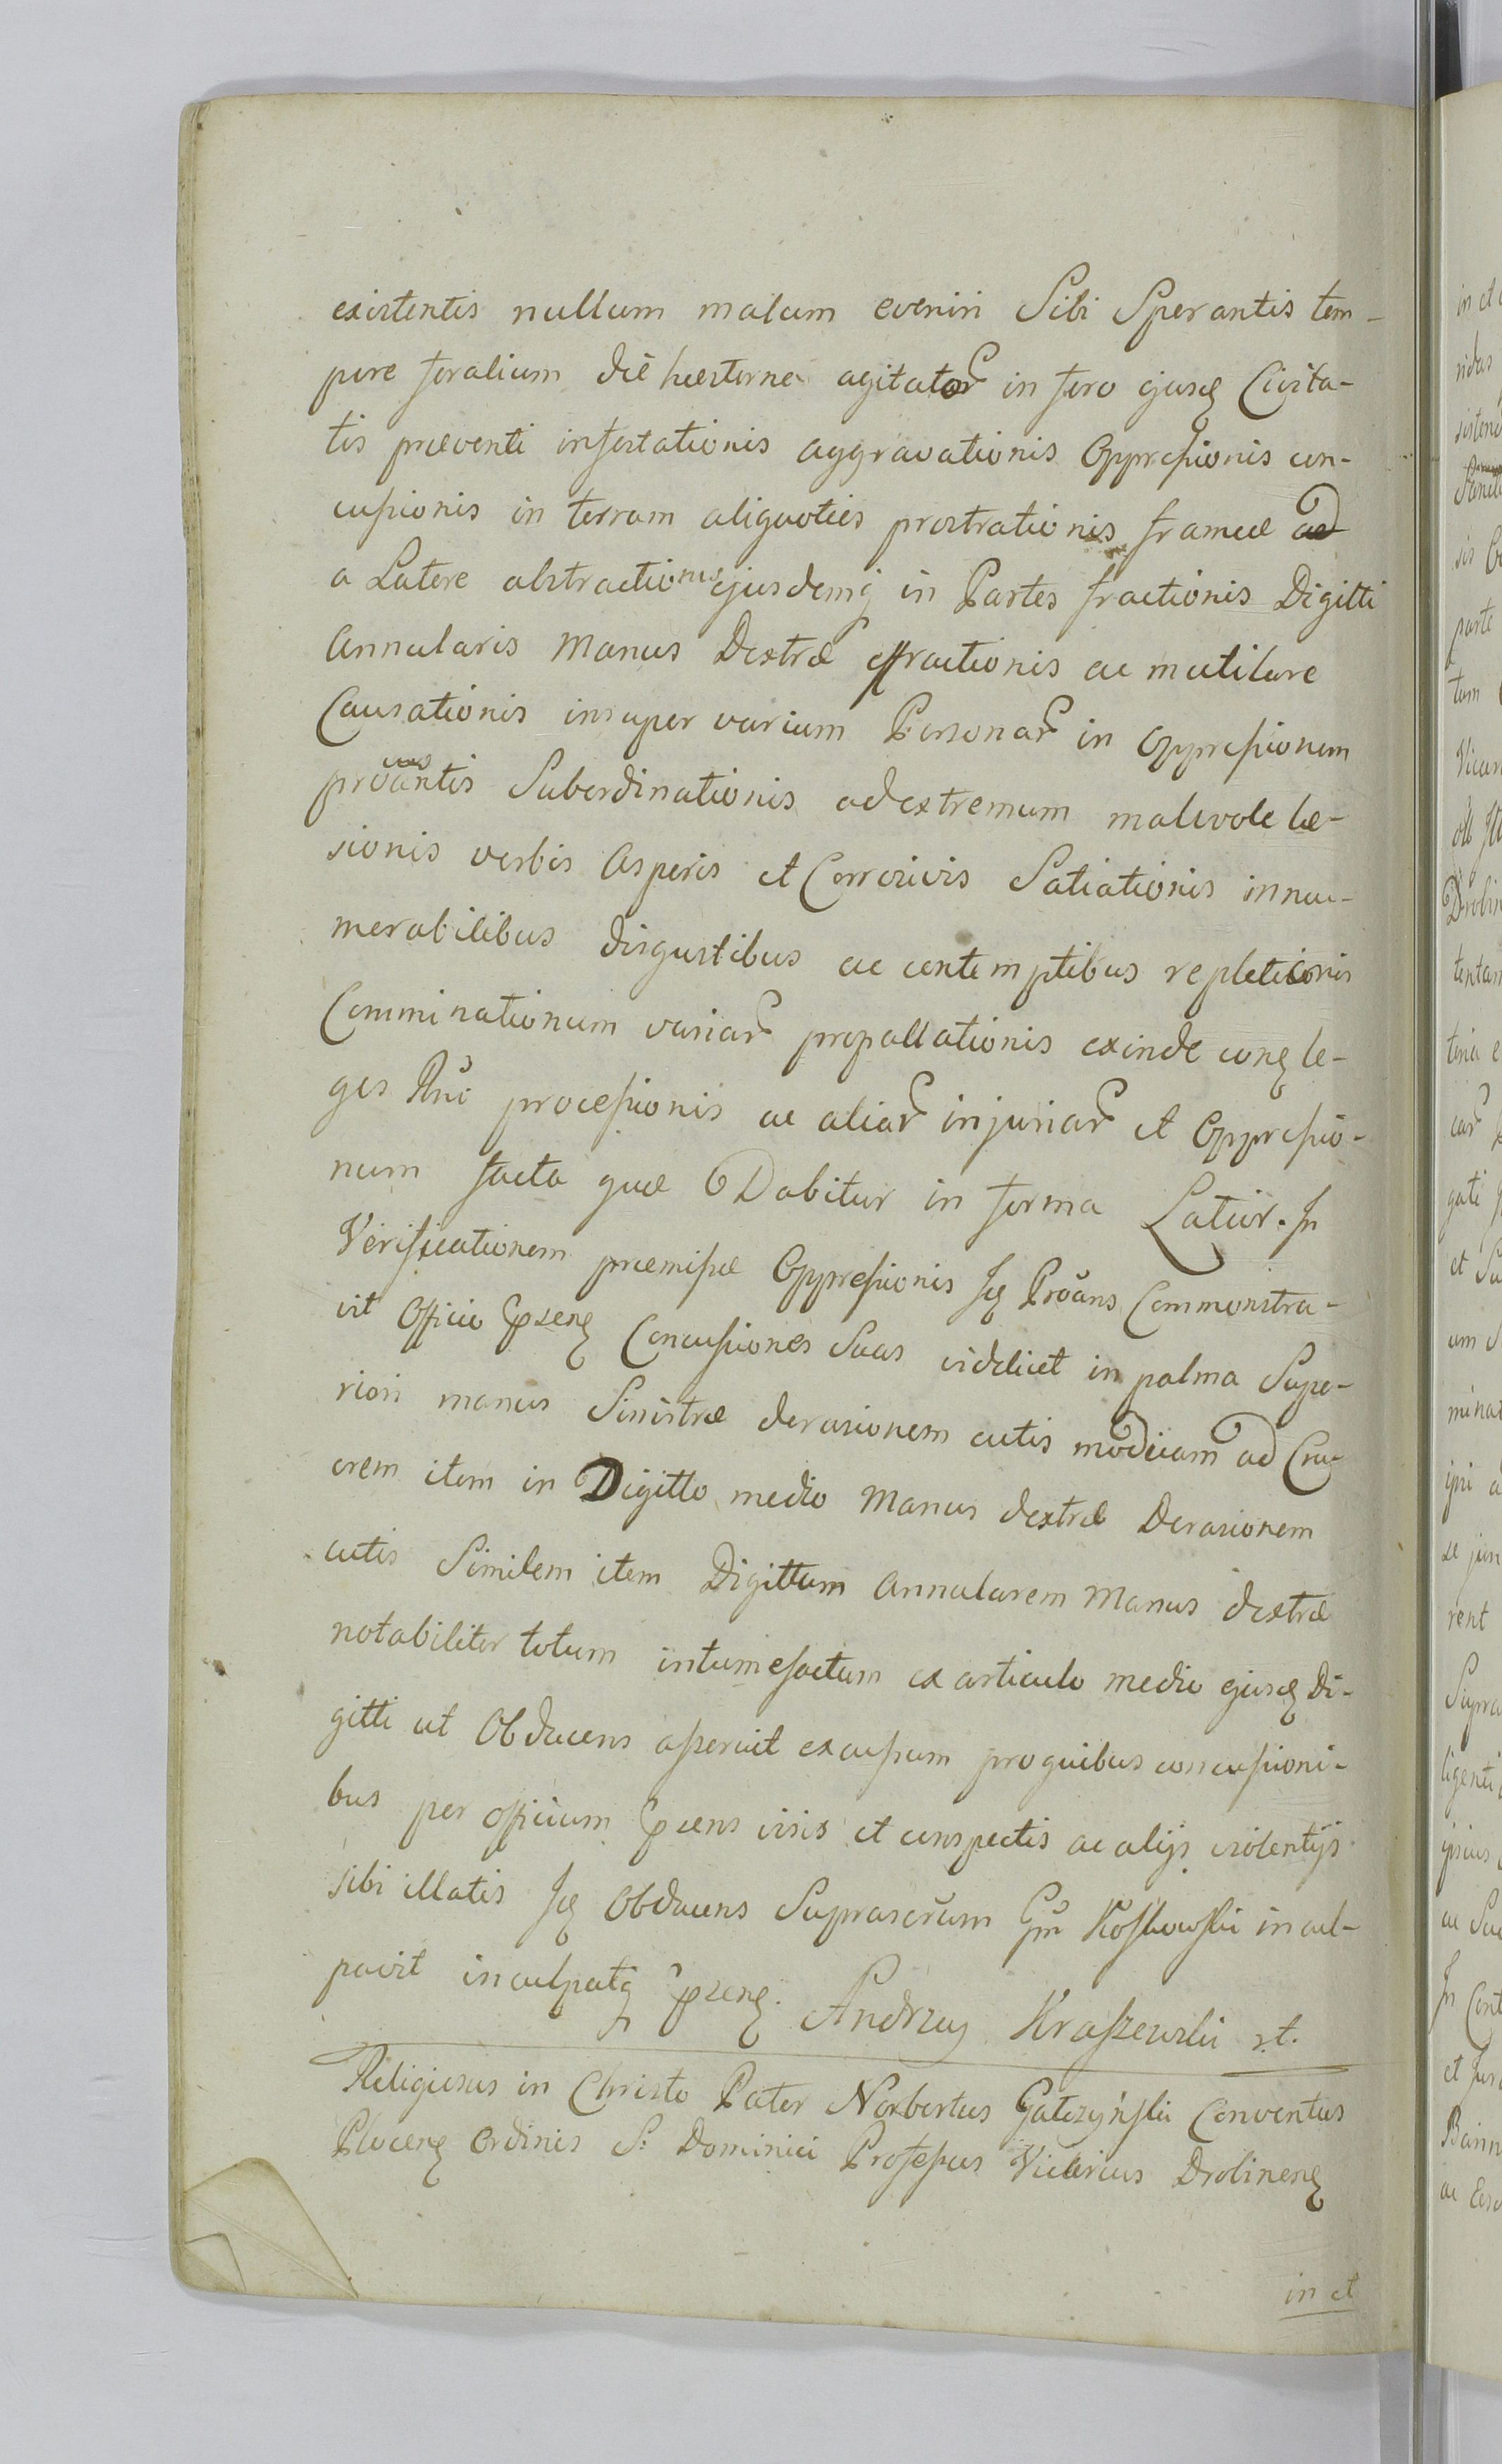 existentis nullum malum eveniri Sibi Sperantis tem-
pore foralium die hesterna agitatar in foro ejusq Civita-
tis præventi infestationis aggravationis Oppressionis con-
cussionis in terram aliquoties prostrationis frameæ
a Latere abstractionis ejusdemq in Partes fractionis Digitti
Annularis Manus Dextræ effractionis ac mutilare
Causationis insuper varium Personar in Oppressionem
proantis Subordinationis ad extremum malevole læ-
sionis verbis Asperis et Corrosivis Satiationis innu-
merabilibus disgustibus ac contemptibus repletionis
Comminationum variar propallationis exinde conq le-
ges Rni processionis ac aliar injuriar et Oppressio-
num facta quæ Dabitur in forma Latior. In
Verificationem præmissæ Oppressionis Jq Proans Commonstra-
vit Officio pszenq Concussiones Suas videlicet in palma Supe-
riori manus Sinistræ derasionem cutis modicam ad Cru-
orem item in Digitto medio Manus dextræ Derasionem
cutis Similem item Digittum Annularem Manus dextræ
notabiliter totum intumefactum ex articulo medio ejusq Di-
gitti ut Obducens asseruit excussum pro quibus concussioni-
bus per officium psens visis et conspectis ac alijs violentijs
sibi illatis Jq Obducens Suprascrum Gm Kossowski incul-
pavit inculpatq pszenq. Andrzey Kraszewski r.t.
Religiosus in Christo Pater Norbertus Gałczyński Conventus
Plocenq Ordinis S: Dominici Professus Vicarius Drobinenq
in et